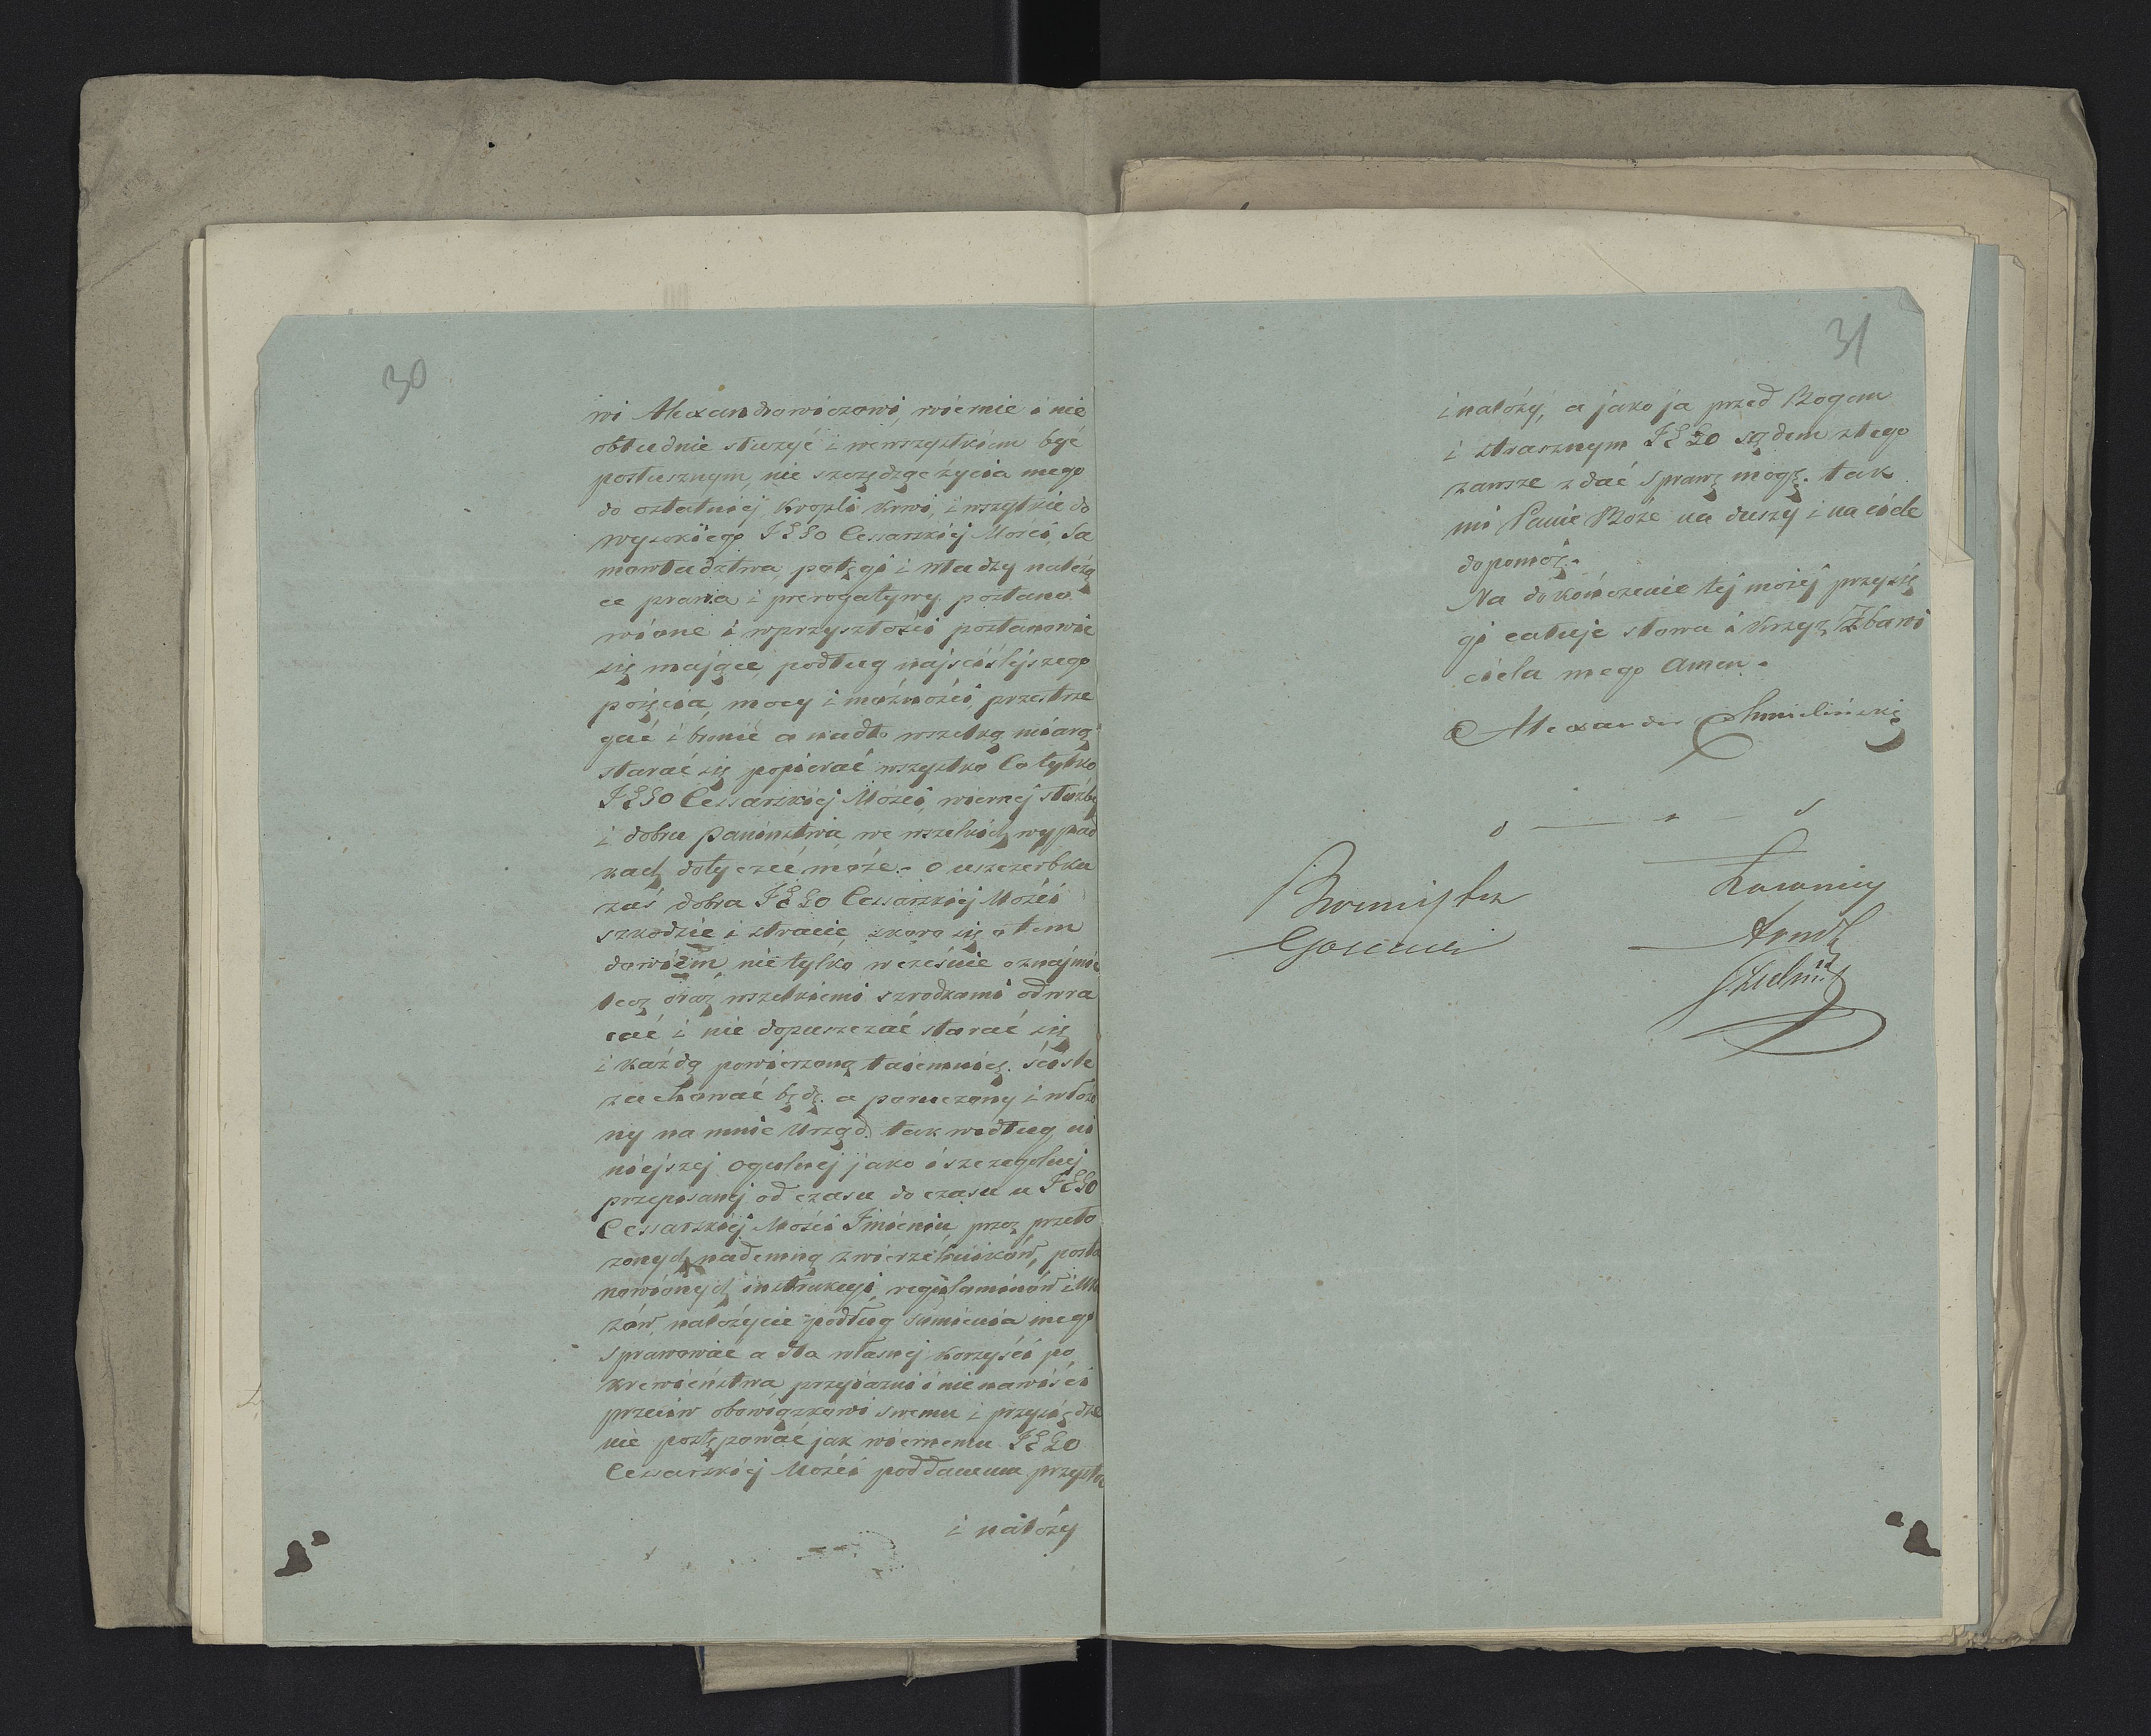 30
wi Alexandrowiczowi, wiernie i nie
obłudnie służyć i wewszystkiem być
posłusznym, nie szczędząc życia mego
do ostatniéj kropli krwi, i wszystkie do
wysokiego JEGO Cessarskiéj Mości, Sa
mowładztwa, potęgi i władzy należą
ce prawa i prerogatywy postano
wione i wprzyszłości postanowić
się mające, podług najściślejszego
pojęcia, mocy i możności, przestrze
gać i bronić a nadto wszelką miarą
starać się popierać wszystko Co tylko
JEGO Cessarskiéj Mości, wiernej służby
i dobra Państwa, we wszelkich wypad
kach dotyczeć może.- O uszczerbku
zaś dobra JEGO Cessarskiéj Mości
szkodzie i stracie, skoro się otem
dowiem, nie tylko wcześnie oznajmić
lecz oraz wszelkiemi szrodkami odwra
cać i nie dopuszczać starać się
i każdą powierzoną taiemnicę. ściśle
zachować będę. a poruczony i włożo
ny na mnie Urząd. tak według ni
niejszej ogulnej jako i szczegolnej
przepisanej od czasu do czasu w JEGO
Cessarskiéj Mości Imieniu, przez przeło
zonych nademną zwierzchników, posta
nowionych instrukcyi, regulaminów i Uka
zów, należycie podług sumienia mego
sprawować a dla własnej korzyści po
krewieństwa, przyiazni i nienawiści
przeciw obowiązkowi swemu i przysiędze
nie postępować jak wiernemu JEGO
Cessarskiéj Mości poddanemu przystoi
i należy
31
i należy, a jako ja przed Bogem
i strasznym JEGO sądem ztego
zawsze zdać sprawę mogę. tak
mi Panie Boże na duszy i na ciele
dopomóż.-
Na dokończenie tej mojéj przysię
gi całuje słowa i Krzyż, Zbawi
ciela mego Amen.-
Alexander Chmieliński
Burmistrz
Ławnicy
Arndt